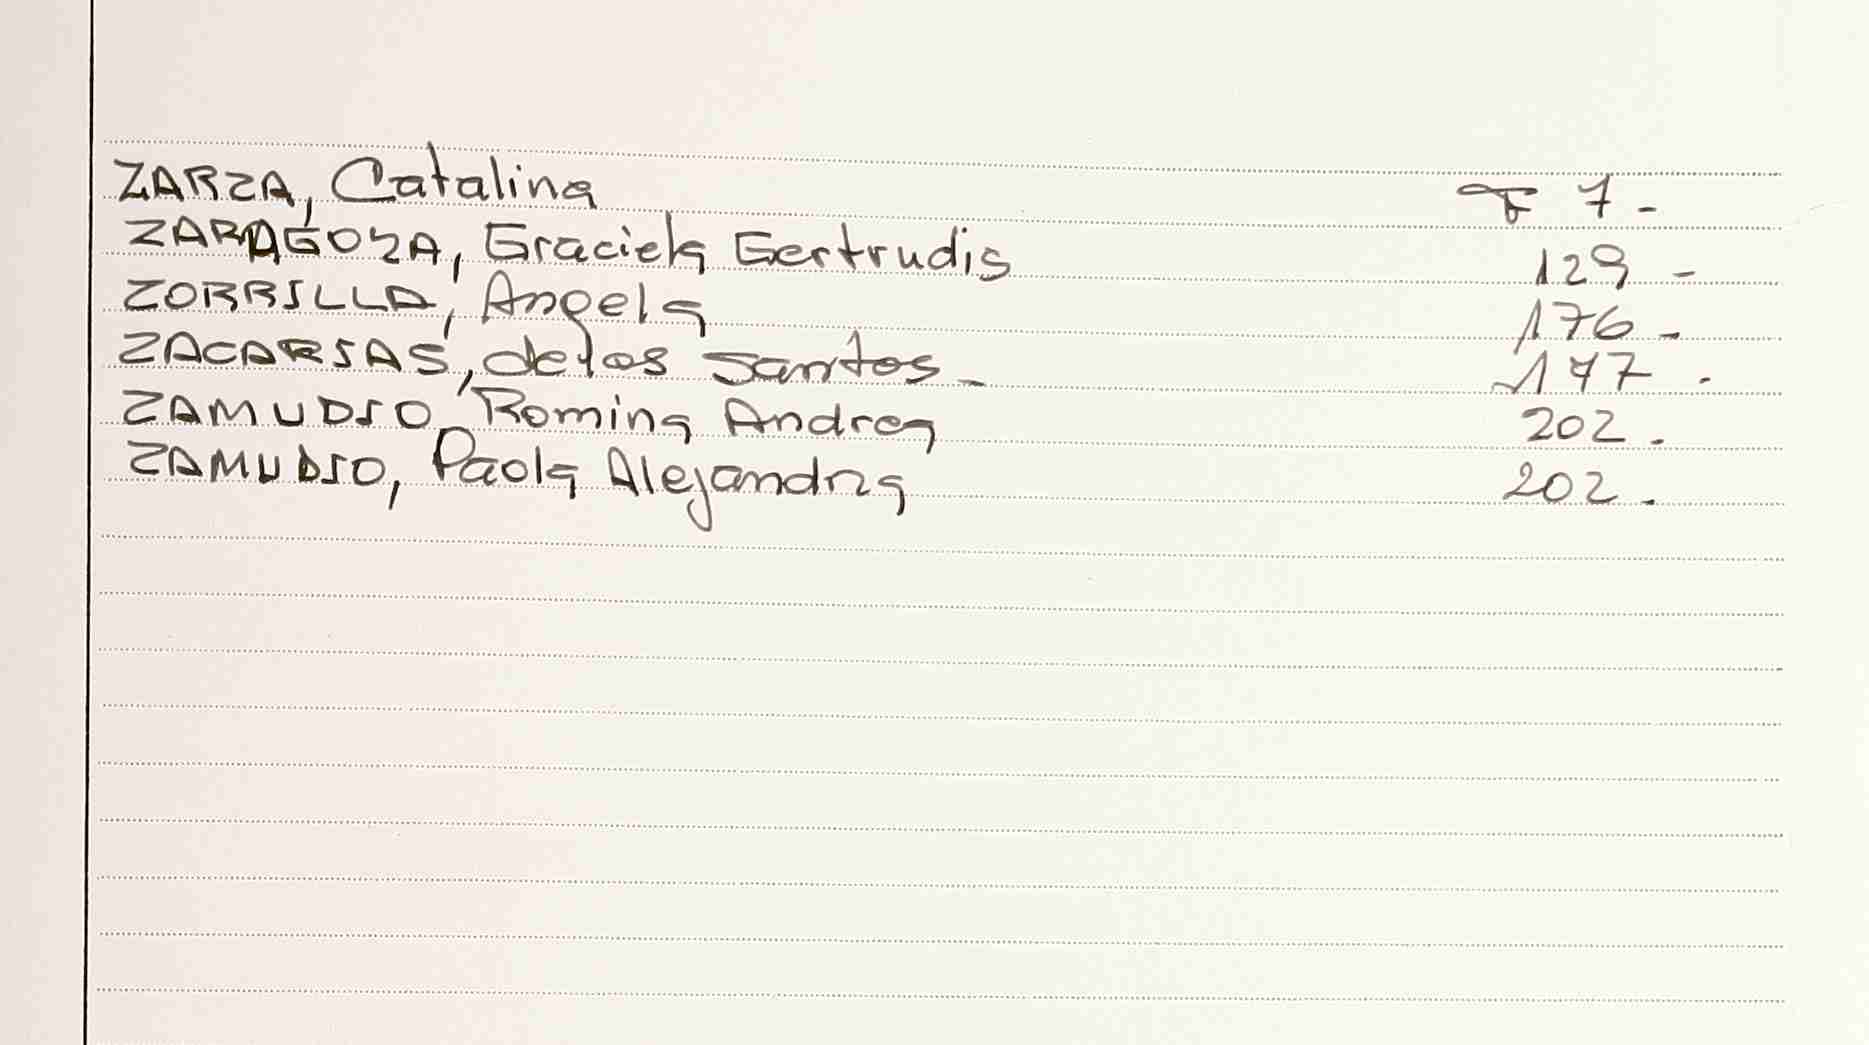 ZARZA, Catalina F 7.-
ZARAGOZA, Graciela Gertrudis 129 -
ZORRILLA, Angela 176 -
ZACARIAS, de los Santos - 177 .
ZAMUDIO, Romina Andrea 202 .
ZAMUDIO, Paola Alejandra 202 .